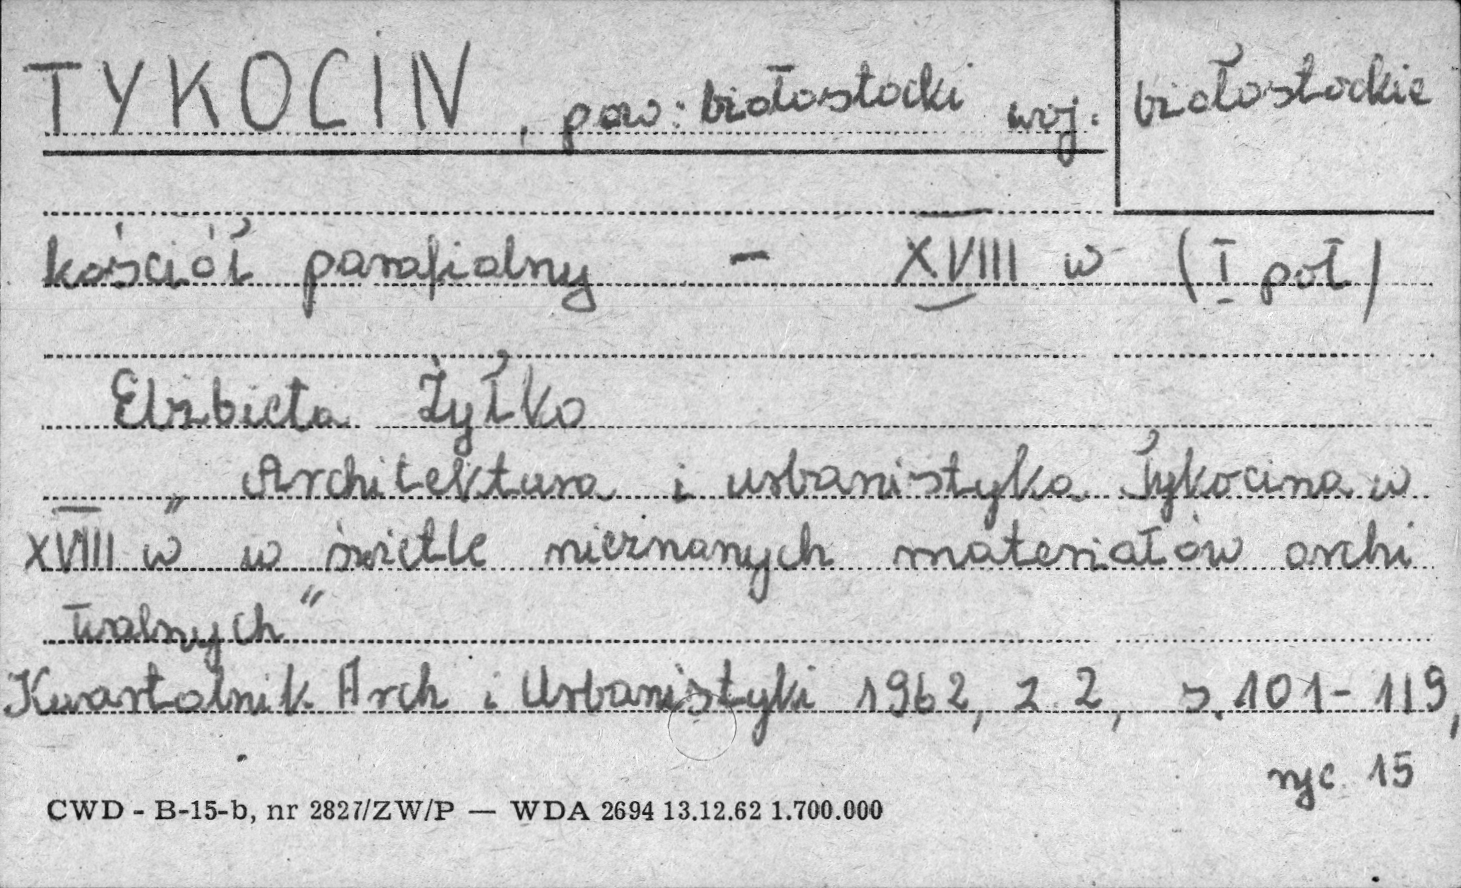 TYKOCIN, pow: białostocki woj. białostockie
kościół parafialny - XVIII w (I poł)
Elżbieta Żyłko
„Architektura i urbanistyka Tykocina w
XVIII w w świetle nieznanych materiałów archi
walnych"
Kwartalnik Arch i Urbanistyki 1962, z 2, s. 101-119,
ryc. 15
CWD - B-15-b, nr 2827/ZW/P — WDA 2694 13.12.62 1.700.000